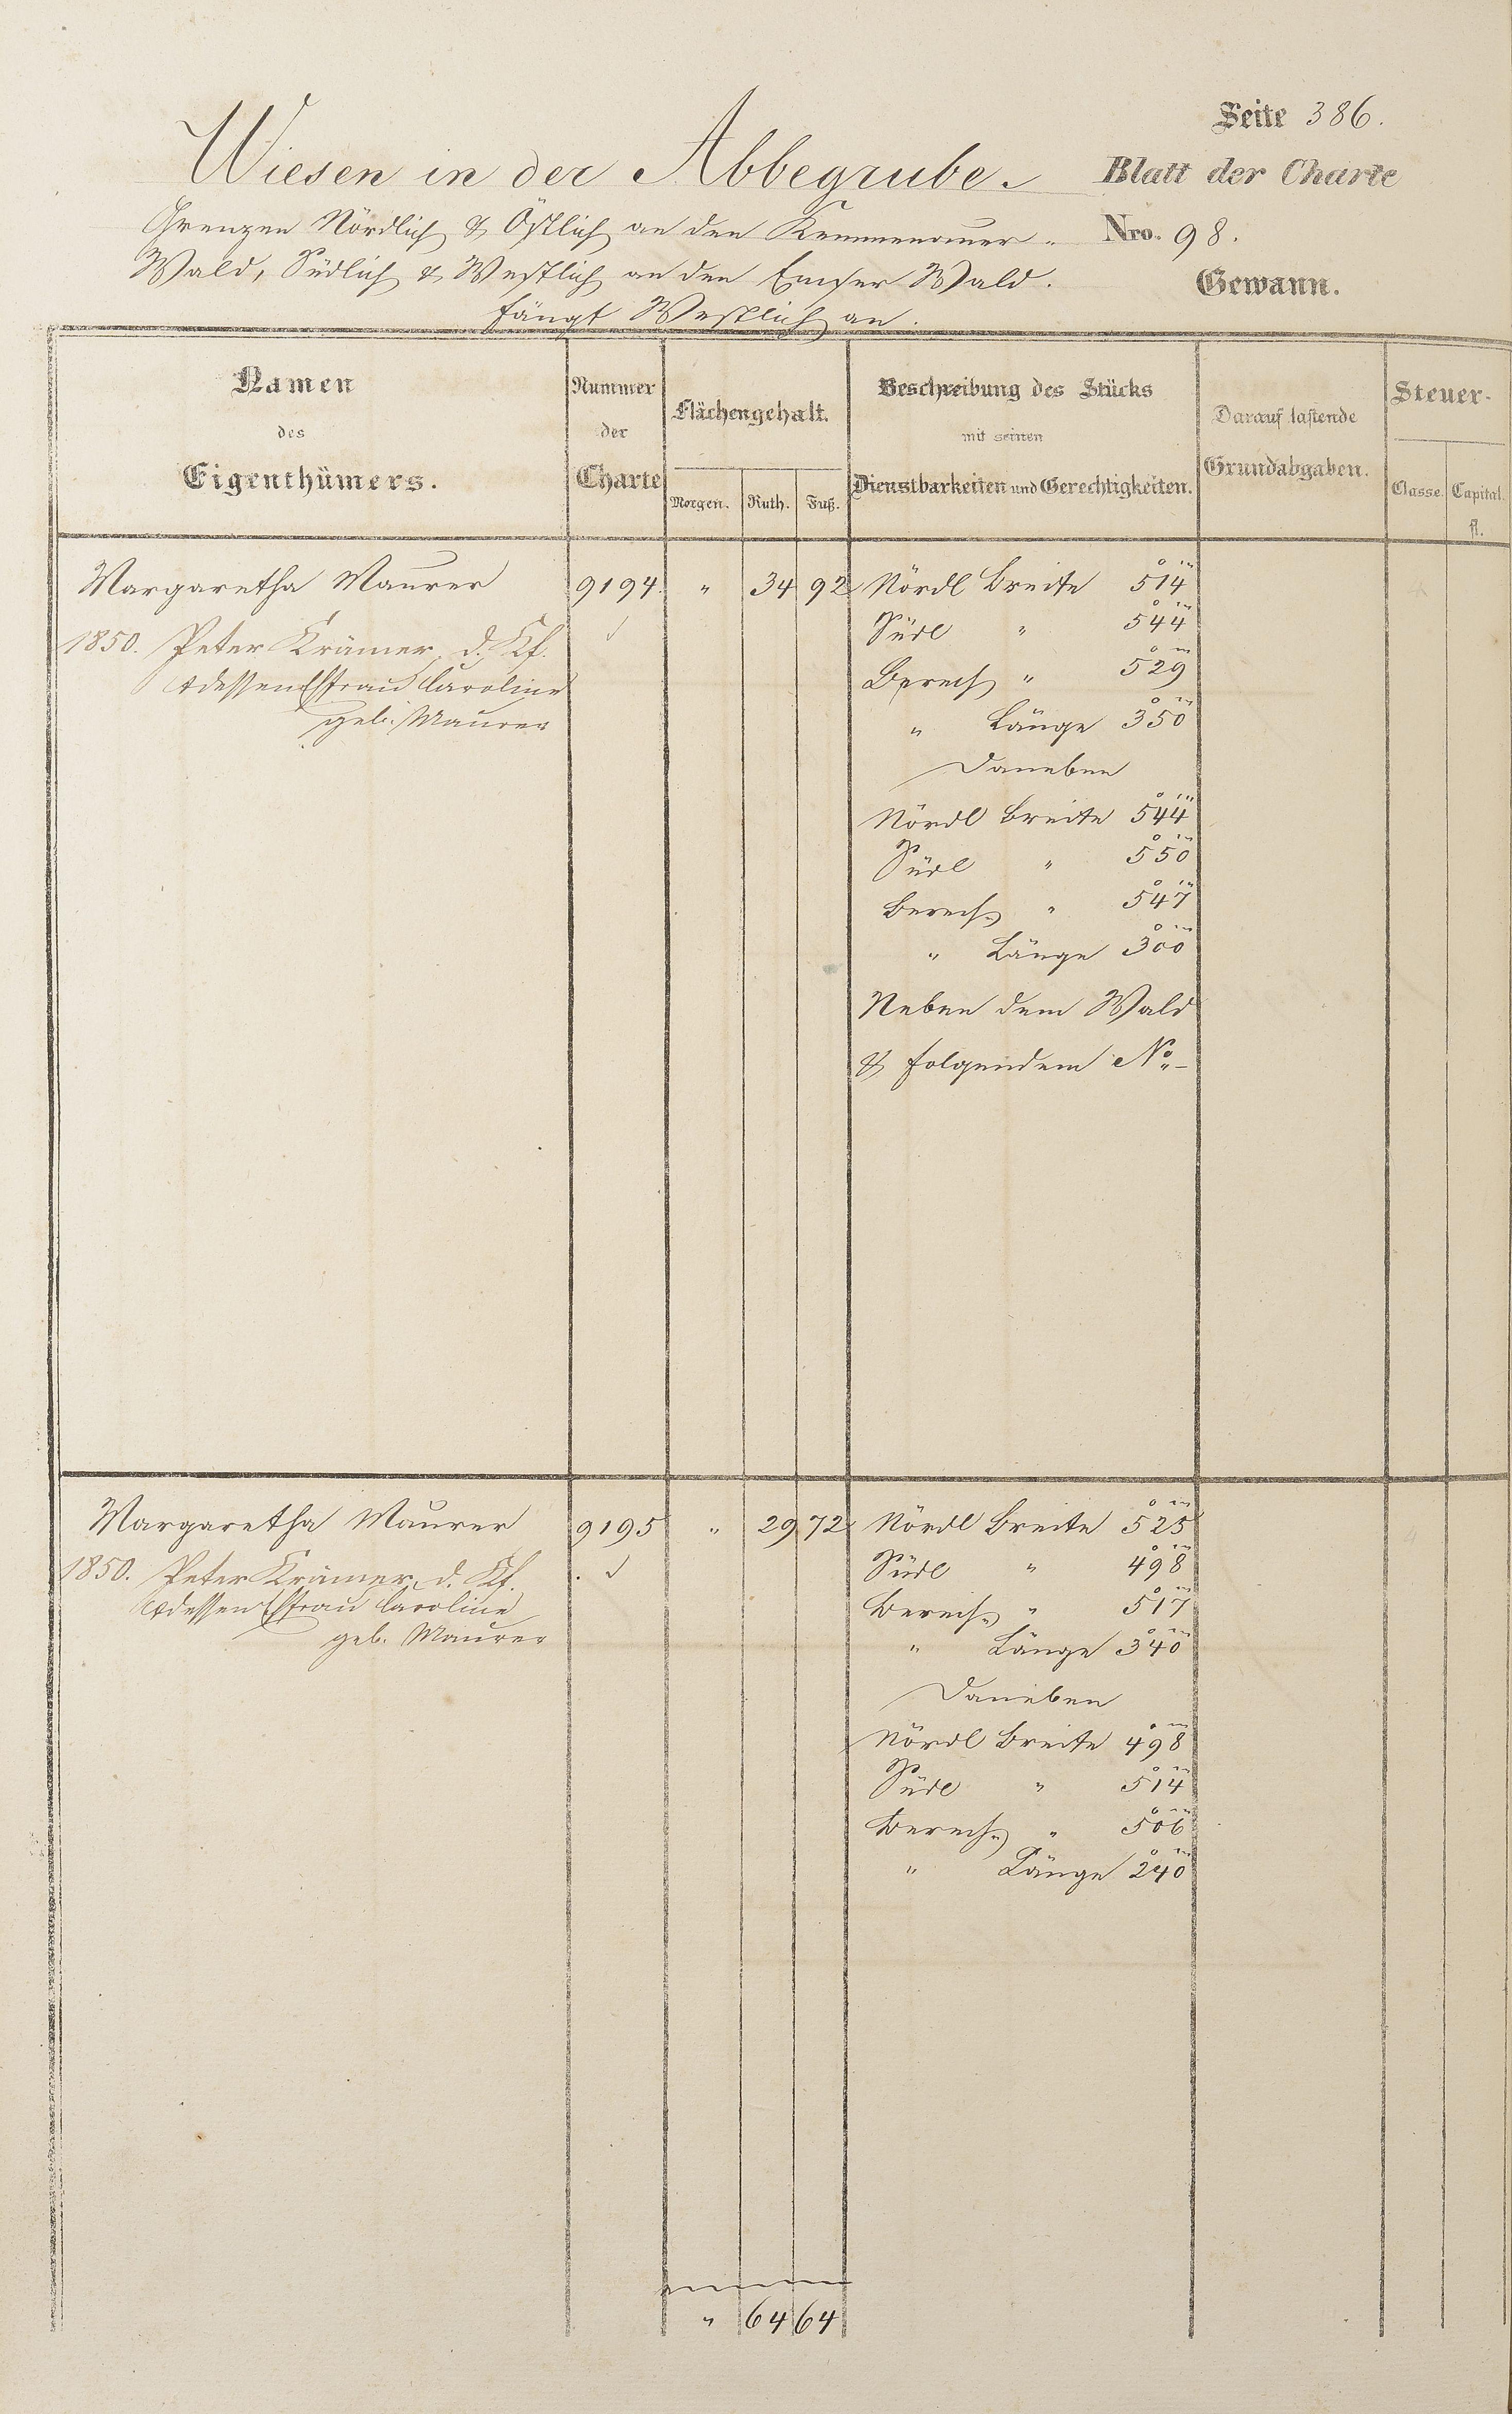 Seite 386.
Wiesen in der Abbegrube.
Blatt der Charte
Grenzen Nördlich & Östlich an den Kemmenauer
Nro. 98.
Wald, Südlich & Westlich an den Emser Wald.
Gewann.
fängt Westlich an.
Namen
des
Eigenthümers.
Nummer
der
Charte
Flächengehalt.
Morgen. Ruth. Fuß.
Beschreibung des Stücks
mit seinen
Dienstbarkeiten und Gerechtigkeiten.
Darauf lastende
Grundabgaben.
Steuer-
Classe. Capital.
fl.
Margaretha Maurer 9194. " 34 92 Nördl Breite 5°14'''
1850. Peter Krämer, d. Kf. Südl " 5°44'''
& dessen Ehfrau Caroline Berech " 5°29'''
geb. Maurer " Länge 3°50'''
Daneben
Nördl Breite 5°44'''
Südl " 5°50'''
Berech. " 5°47'''
" Länge 3°00'''
Neben dem Wald
& folgendem No.
Margaretha Maurer 9195 " 29 72 Nördl Breite 5°25'''
1850. Peter Krämer, d. Kf. Südl " 4°98'''
& dessen Ehfrau Caroline Berech. " 5°17'''
geb. Maurer " Länge 3°40'''
Daneben
Nördl Breite 4°98'''
Südl " 5°14'''
Berech. " 5°06'''
" Länge 2°40'''
" 64 64